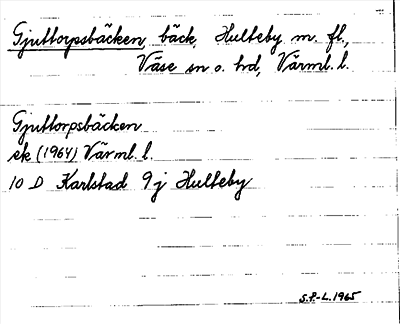 Gjuttorpsbäcken, bäck, Hulteby m. fl.,
Väse sn o. hd, Värml. l.
Gjuttorpsbäcken
ek (1964) Värml. l.
10 D Karlstad 9j Hulteby
S.F-L. 1965